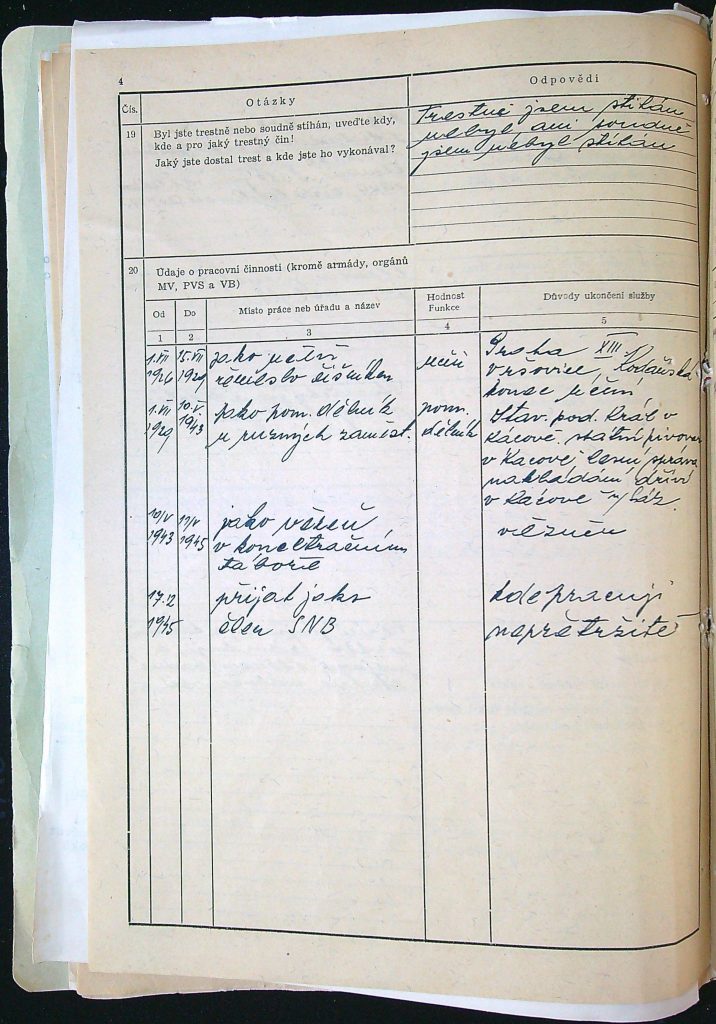 4
Čís.
Otázky
Odpovědi
19
Byl jste trestně nebo soudně stíhán, uveďte kdy,
kde a pro jaký trestný čin!
Jaký jste dostal trest a kde jste ho vykonával?
Trestně jsem stíhán
nebyl, ani soudně
jsem nebyl stíhán
20
Údaje o pracovní činnosti (kromě armády, orgánů
MV, PVS a VB)
Od
Do
Místo práce neb úřadu a název
Hodnost
Funkce
Důvody ukončení služby
1
2
3
4
5
1.VII 15.VII jako učeň učeň Praha XIII.
1926 1929 řemeslo číšníkem Vršovice, Kodaňská
konec učení
1.VII 10.V. jako pom. dělník pom. Stav. pod. Král v
1929 1943 u různých zaměst. dělník Kácově, státní pivovar
v Kácově, lesní správa
nakládání dříví
v Kácově
10/V 11/V jako vězeň vězněn
1943 1945 v koncetračním
táboře
17.2 přijat jako kde pracuji
1945 člen SNB nepřetržitě